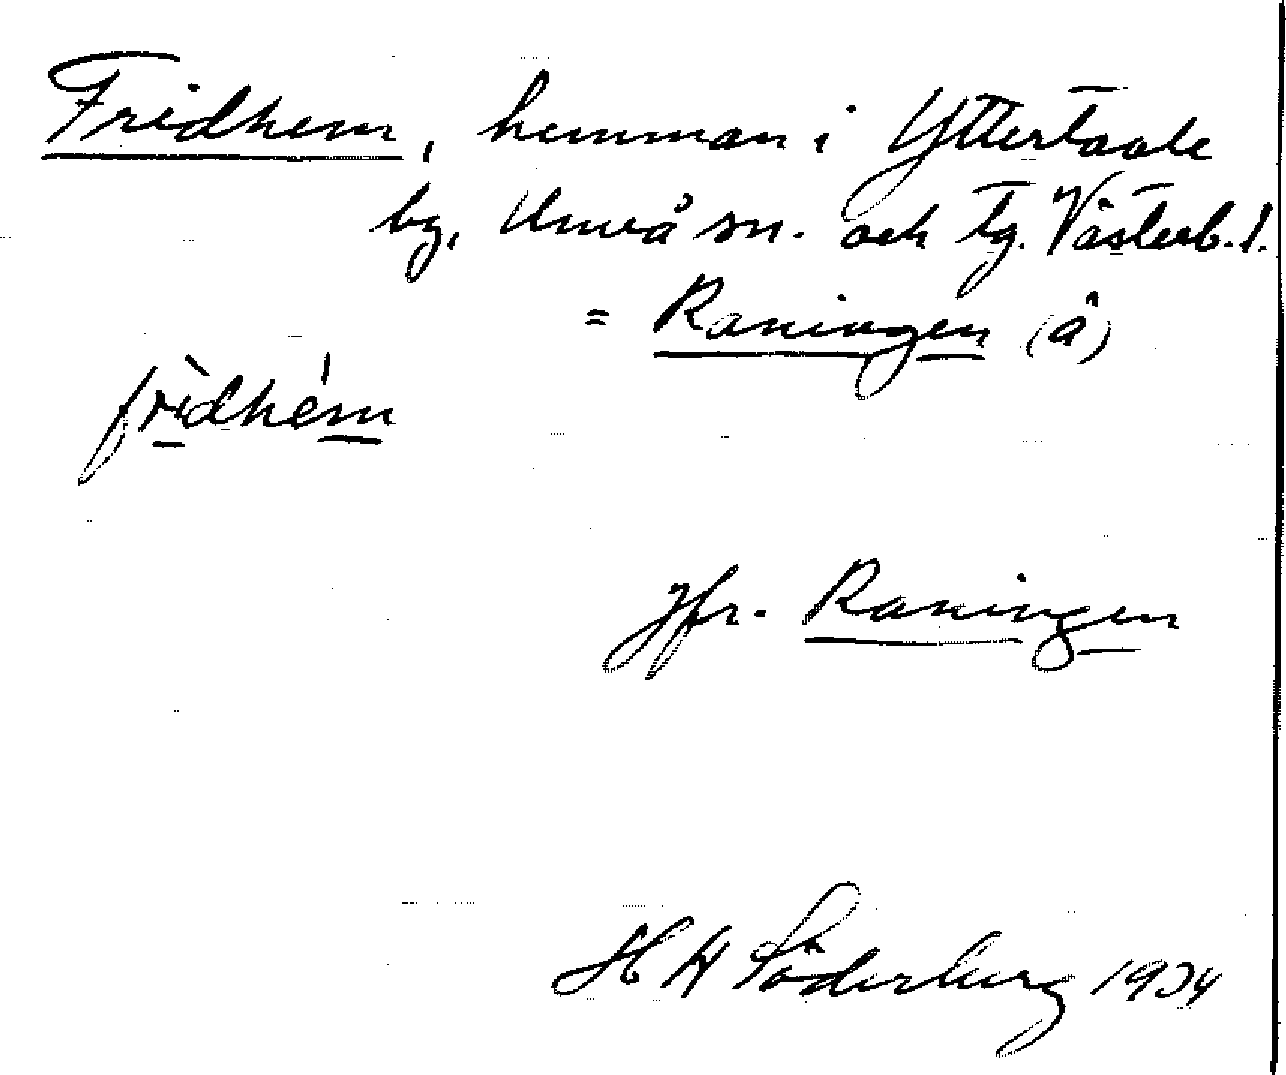 Fridhem, hemman i Yttertavle
by, Umeå sn. och tg. Västerb. l.
= Raningen (å)
fri̱dhe̱m
Jfr. Raningen
H H Söderberg 1934